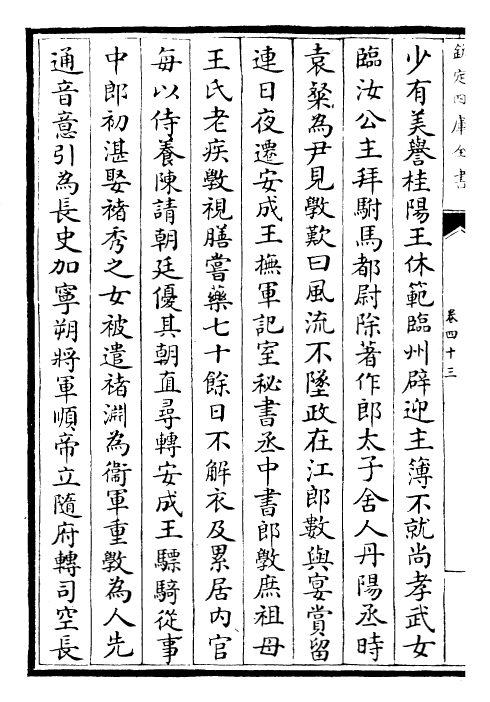 欽定四庫全書
卷四十三
少有美譽桂陽王休範臨州辟迎主簿不就尚孝武女
臨汝公主拜駙馬都尉除著作郎太子舍人丹陽丞時
袁粲為尹見斆歎曰風流不墜政在江郎數與宴賞留
連日夜遷安成王撫軍記室秘書丞中書郎斆庶祖母
王氏老疾斆視膳嘗藥七十餘日不解衣及累居内官
每以侍養陳請朝廷優其朝直尋轉安成王驃騎從事
中郎初湛娶禇秀之女被遣禇淵為衞軍重斆為人先
通音意引為長史加寧朔將軍順帝立隨府轉司空長